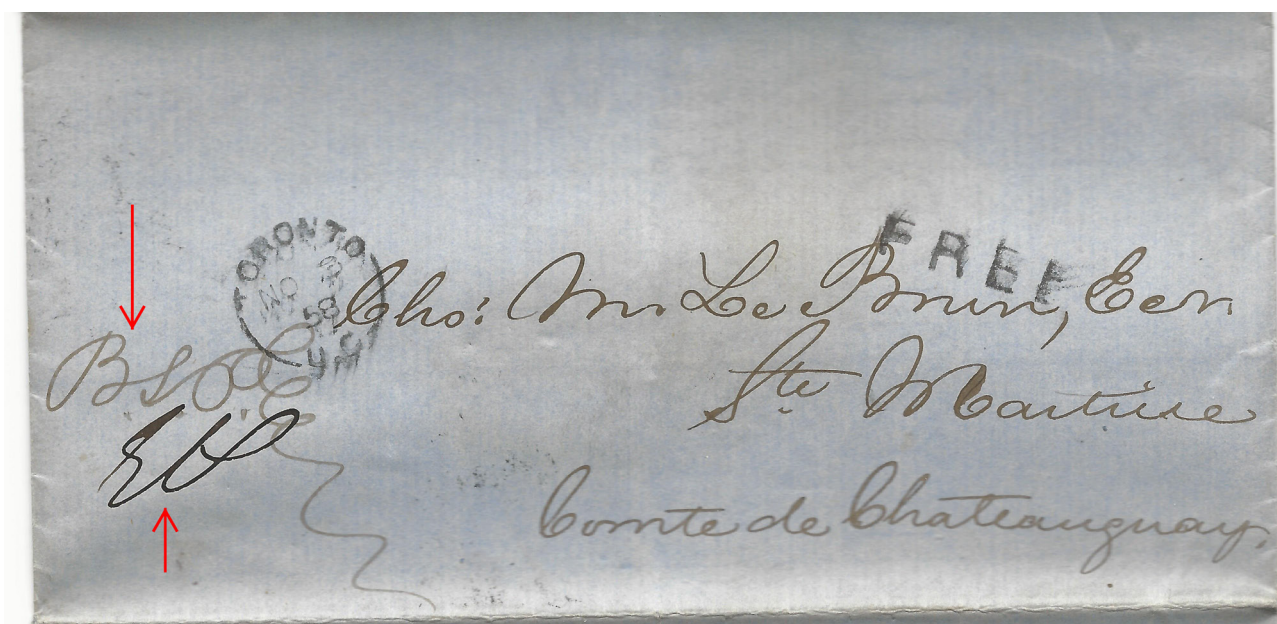 TORONTO
NO 3
58
U.C
FREE
Chs: M. Le Brun, Ecr.
Ste Martine
Comte de Chateauguay.